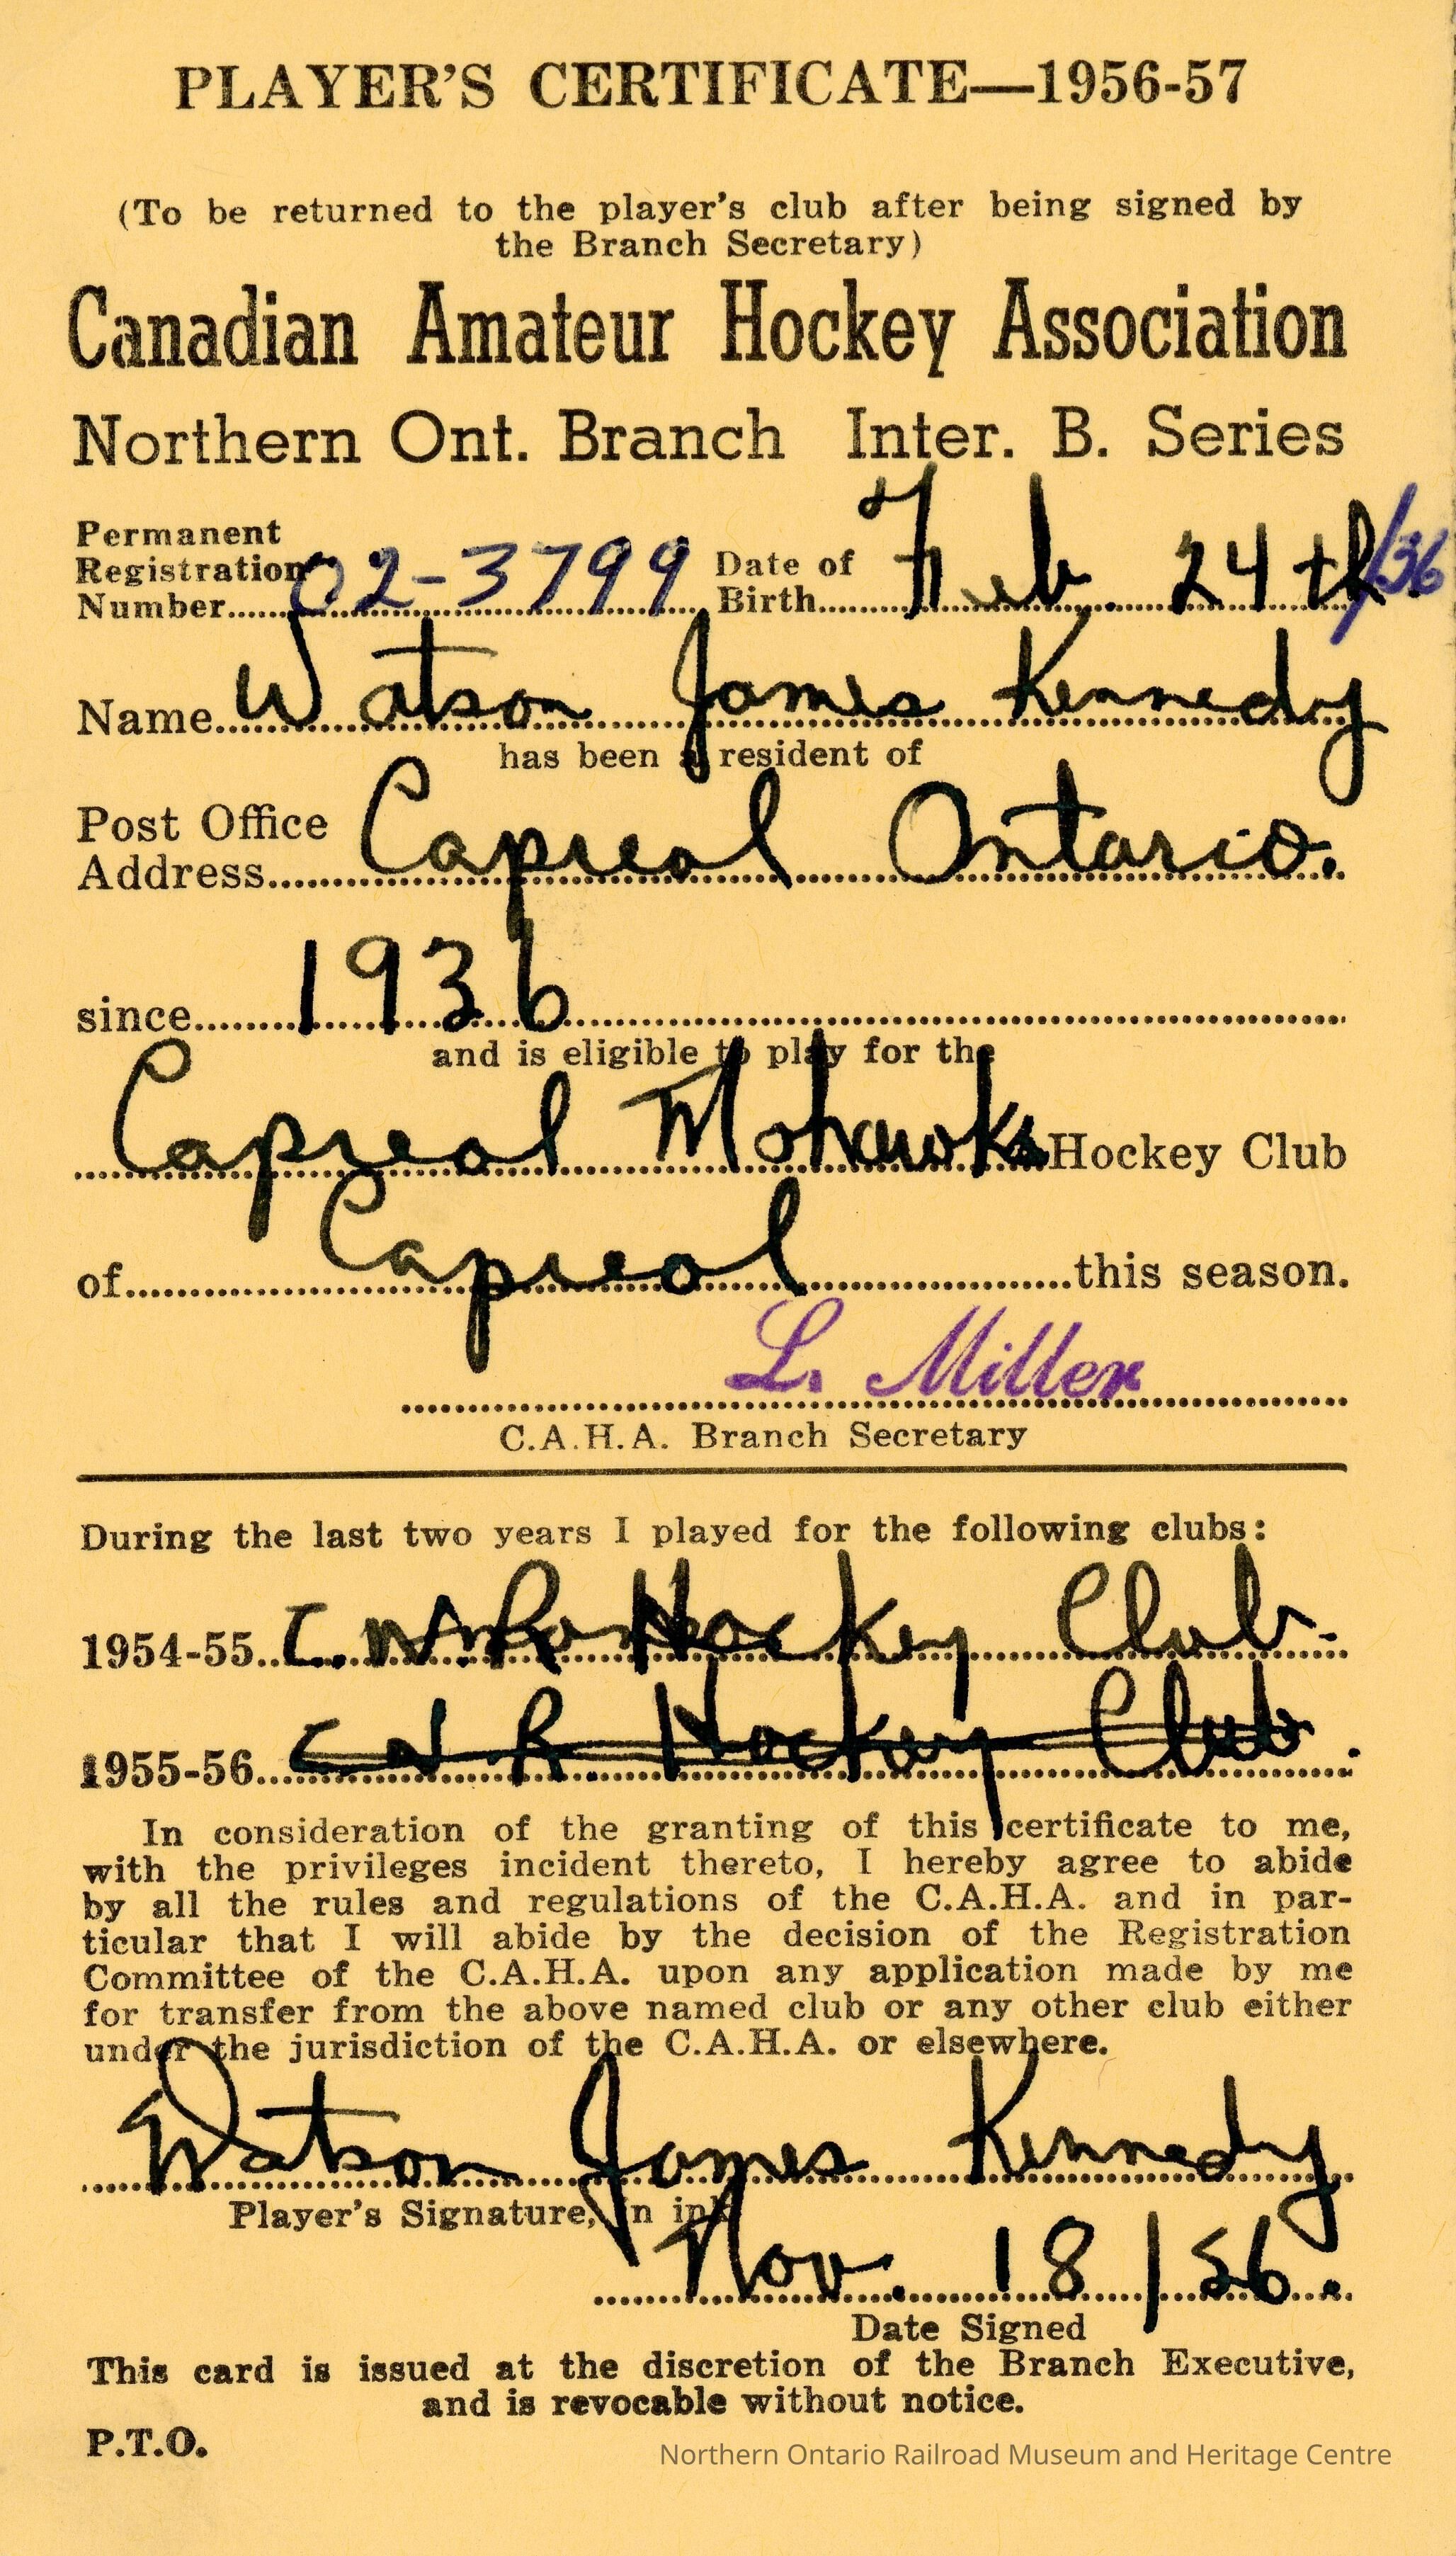 PLAYER'S CERTIFICATE—1956-57
(To be returned to the player's club after being signed by
the Branch Secretary)
Canadian Amateur Hockey Association
Northern Ont. Branch Inter. B. Series
Permanent
Registration
Number 02-3799 Date of
Birth Feb. 24th/36
Name Watson James Kennedy
has been a resident of
Post Office
Address Capreol Ontario.
since 1936
and is eligible to play for the
Capreol Mohawks Hockey Club
of Capreol this season.
L. Miller
C.A.H.A. Branch Secretary
During the last two years I played for the following clubs:
1954-55 C.N.R. Hockey Club
1955-56 C N R. Hockey Club.
In consideration of the granting of this certificate to me,
with the privileges incident thereto, I hereby agree to abide
by all the rules and regulations of the C.A.H.A. and in par-
ticular that I will abide by the decision of the Registration
Committee of the C.A.H.A. upon any application made by me
for transfer from the above named club or any other club either
under the jurisdiction of the C.A.H.A. or elsewhere.
Watson James Kennedy
Player's Signature, in ink
Nov. 18/56.
Date Signed
This card is issued at the discretion of the Branch Executive,
and is revocable without notice.
P.T.O.
Northern Ontario Railroad Museum and Heritage Centre